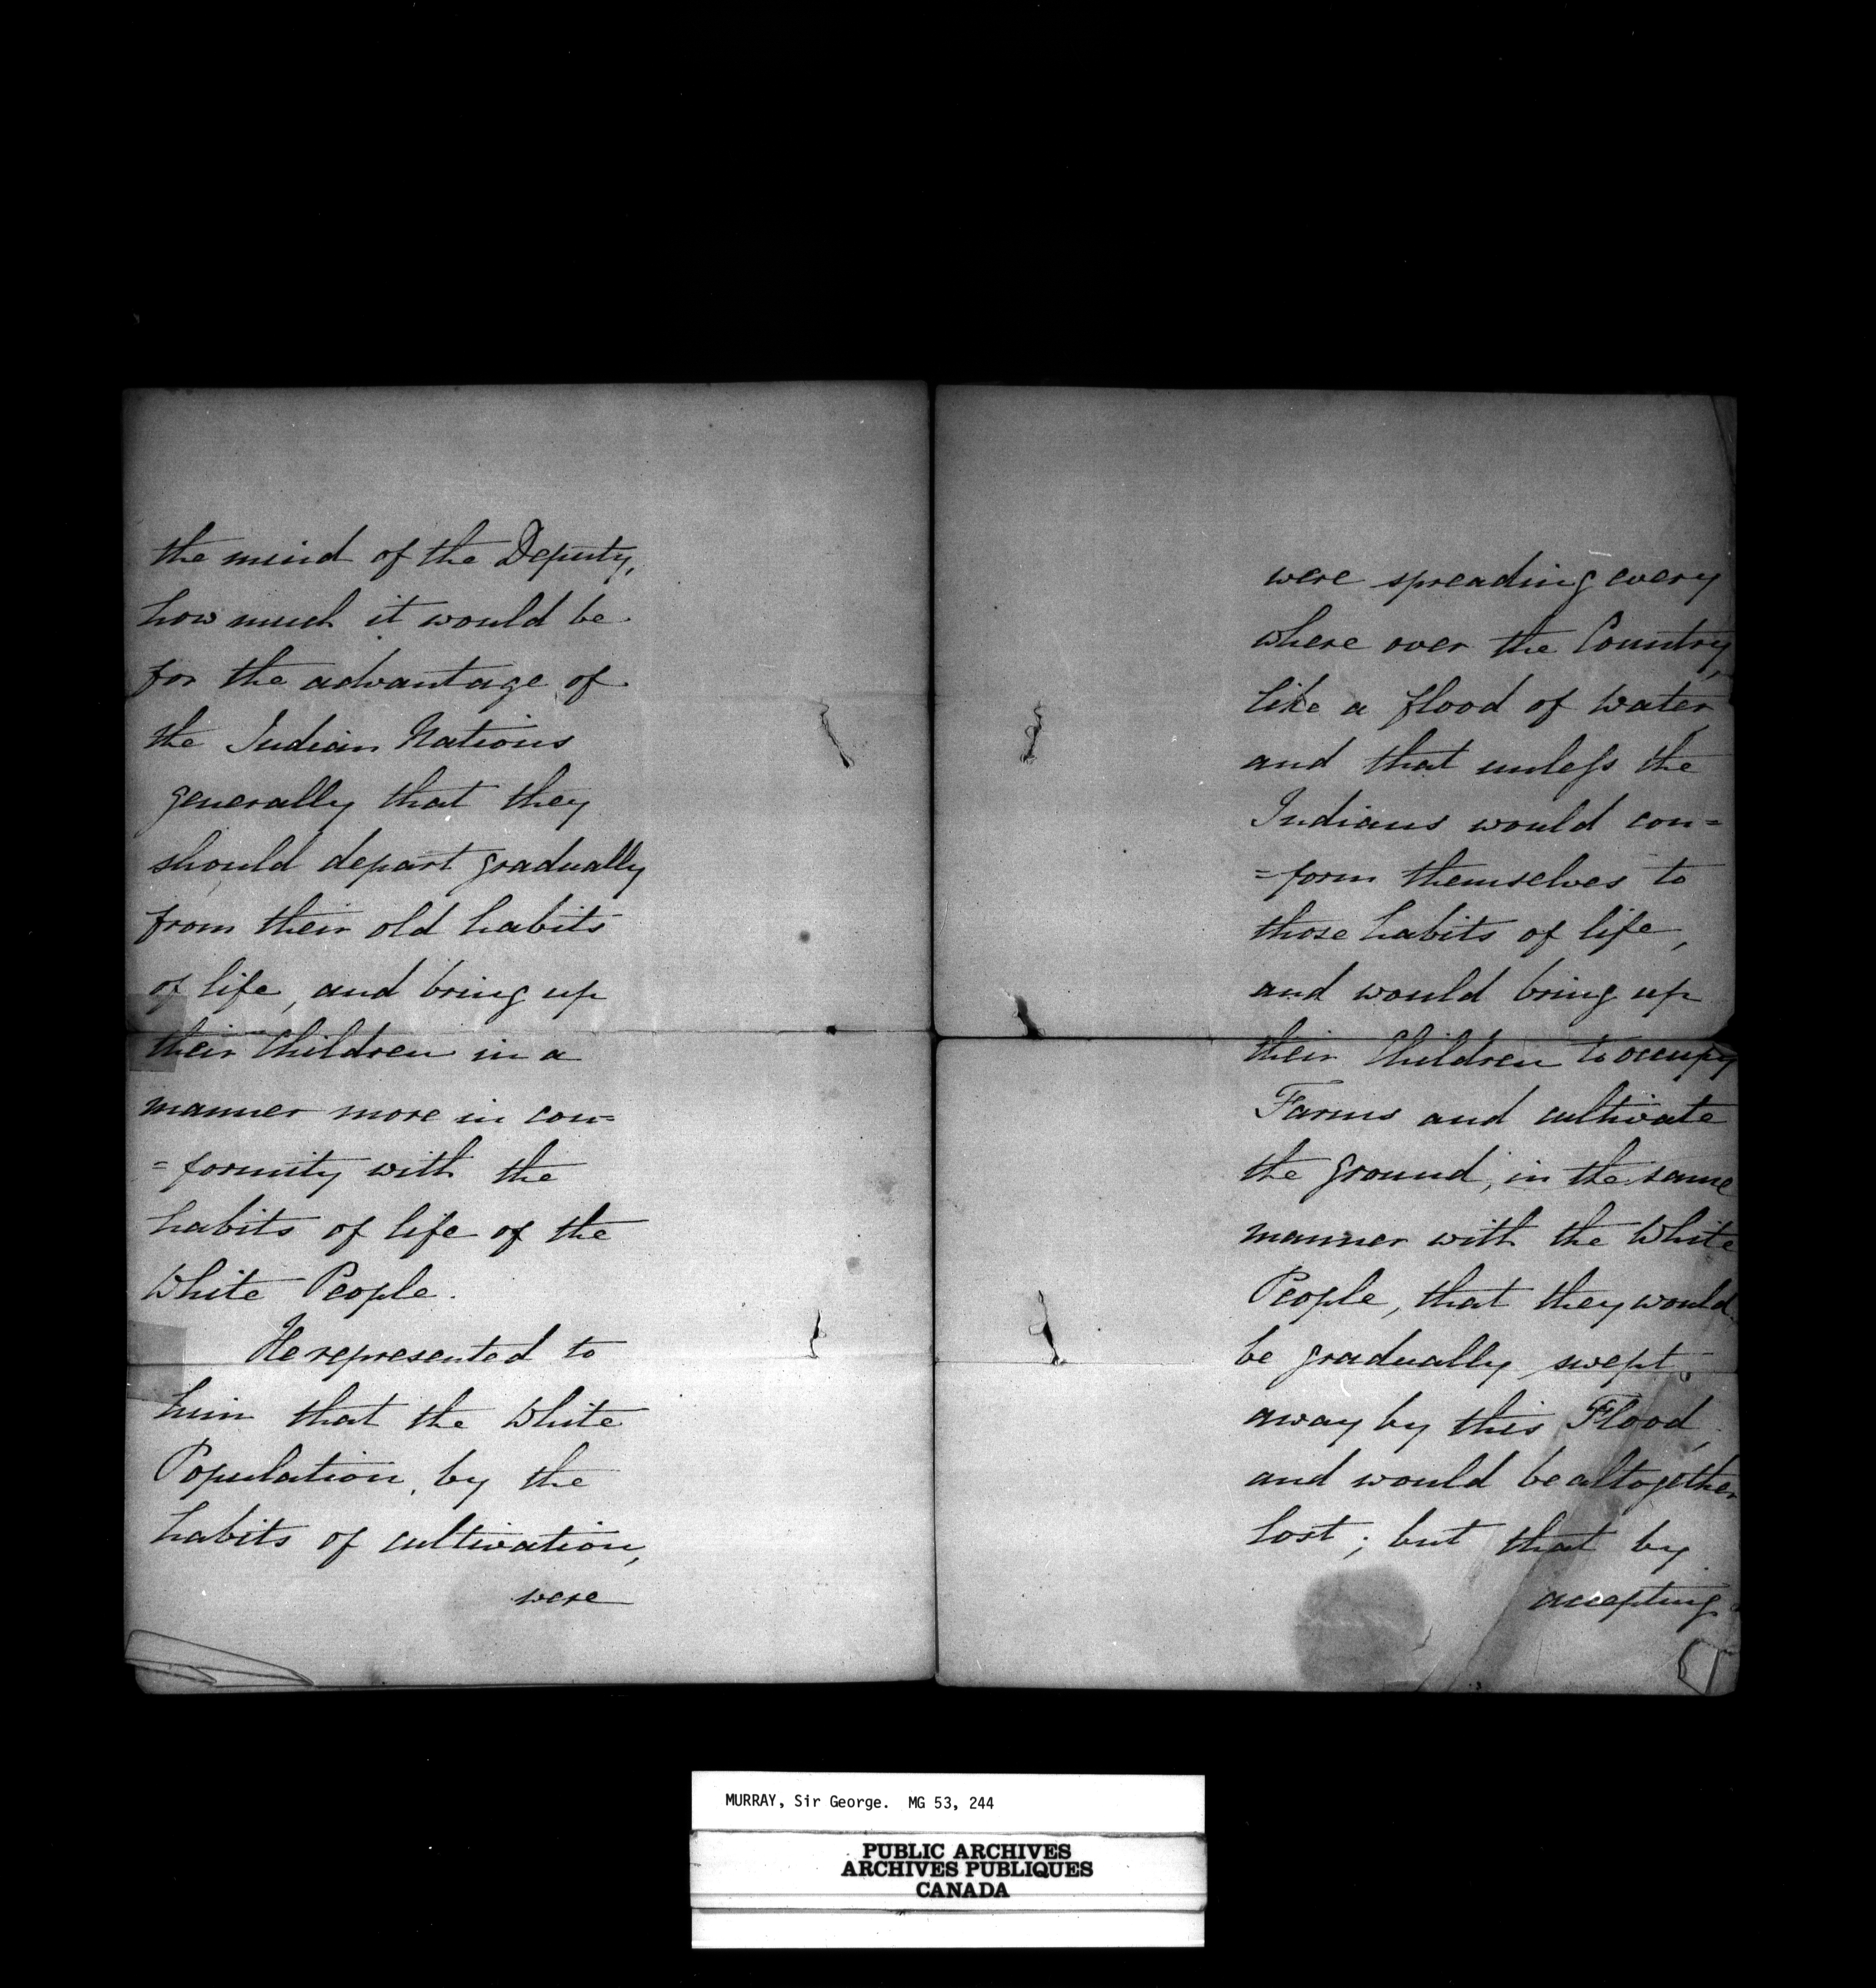 the mind of the Deputy,
how much it would be
for the advantage of
the Indian Nations
generally that they
should depart gradually
from their old habits
of life, and bring up
their Children in a
manner more in con=
=formity with the
habits of life of the
White People.
He represented to
him that the White
Population, by the
habits of cultivation,
were
were spreading every
where over the Country,
like a flood of water,
and that unless the
Indians would con=
=form themselves to
those habits of life,
and would bring up
their Children to occupy
Farms and cultivate
the ground, in the same
manner with the White
People, that they would
be gradually swept
away by this Flood,
and would be altogether
lost; but that by
accepting
MURRAY, Sir George. MG 53, 244
PUBLIC ARCHIVES
ARCHIVES PUBLIQUES
CANADA